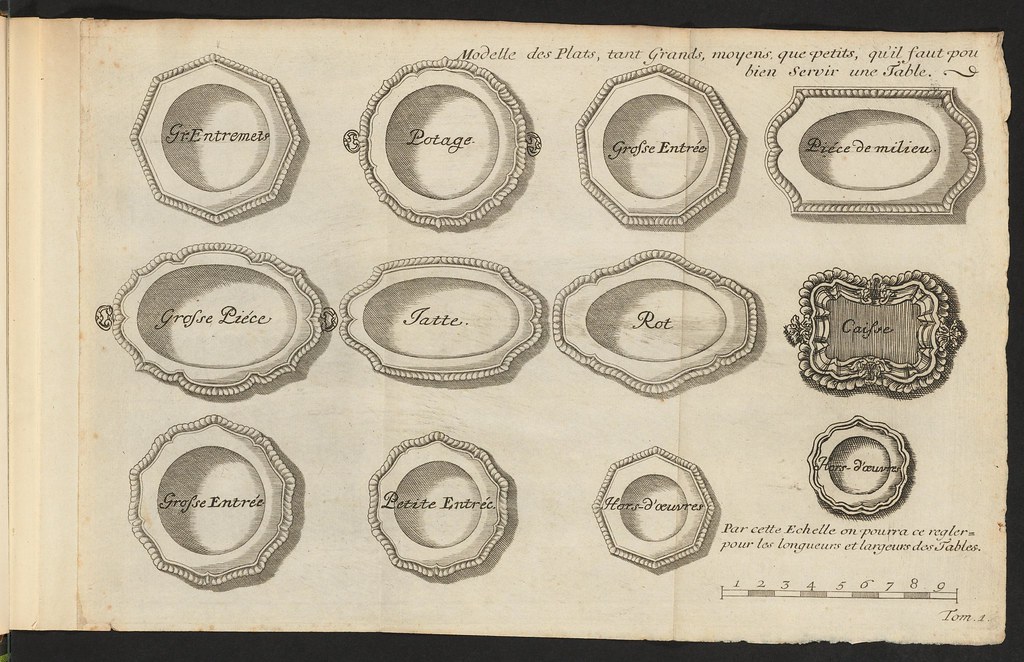 Modelle des Plats, tant Grands, moyens, que petits, qu'il faut pou
bien Servir une Table.
Gr. Entremets
Potage.
Grosse Entrée
Piéce de milieu.
Grosse Piéce
Jatte.
Rot
Caisse
Grosse Entrée
Petite Entrée.
Hors-d'œuvres
Hors-d'œuvres
Par cette Echelle on pourra ce regler=
pour les longueurs et largeurs des Tables.
1 2 3 4 5 6 7 8 9
Tom. 1.